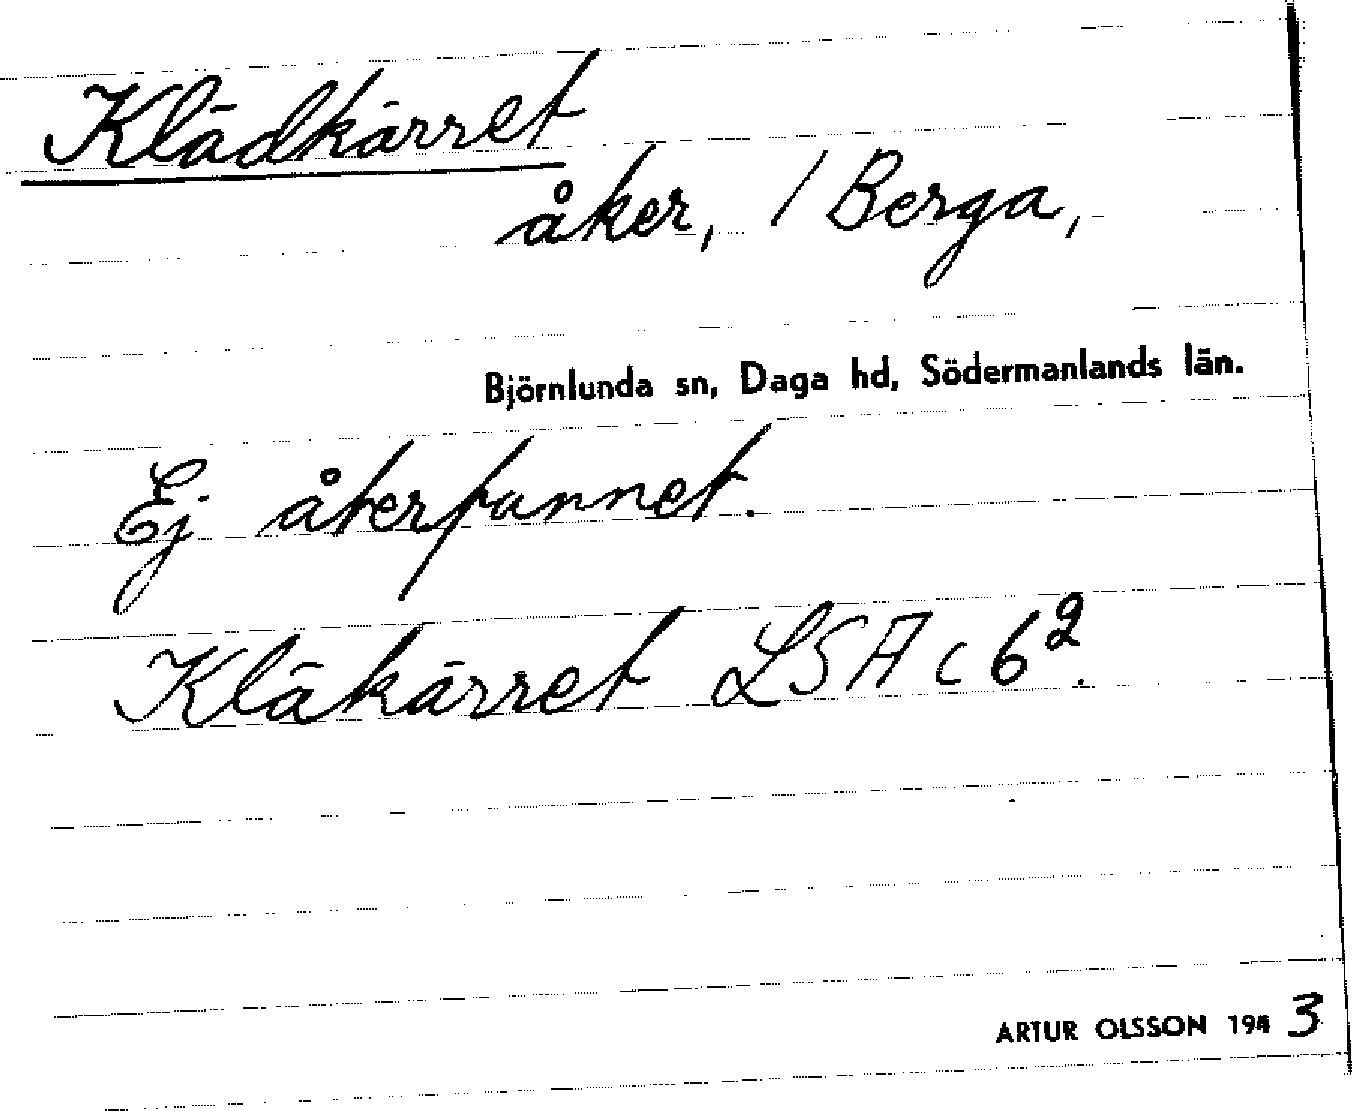 Klädkärret
åker, / Berga,
Björnlunda sn, Daga hd, Södermanlands län.
Ej återfunnet.
Kläkärret LSA c 6².
ARTUR OLSSON 194 3